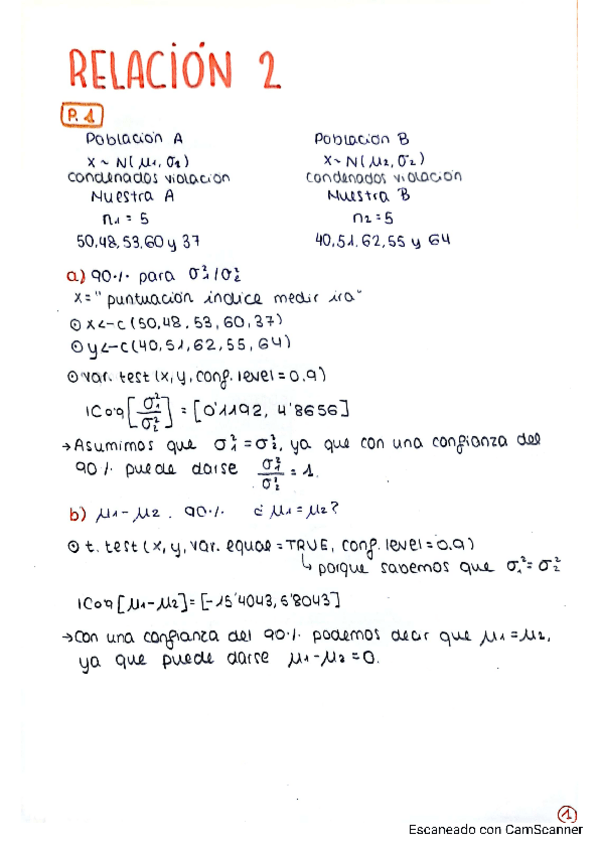 RELACIÓN 2
P. 1
Población A
Población B
X ~ N(μ1, σ1)
X ~ N(μ2, σ2)
condenados violación
condenados violación
Muestra A
Muestra B
n1 = 5
n2 = 5
50, 48, 53, 60 y 37
40, 51, 62, 55 y 64
a) 90% para σ1²/σ2²
X = "puntuación índice medir ira"
⊙ x<-c(50, 48, 53, 60, 37)
⊙ y<-c(40, 51, 62, 55, 64)
⊙ var.test(x, y, conf.level = 0.9)
IC0'9[σ1²/σ2²] = [0'1192, 4'8656]
→ Asumimos que σ1² = σ2², ya que con una confianza del
90% puede darse σ1²/σ2² = 1.
b) μ1 - μ2 . 90% ¿ μ1 = μ2?
⊙ t.test(x, y, var.equal = TRUE, conf.level = 0.9)
↳ porque sabemos que σ1² = σ2²
IC0'9[μ1 - μ2] = [-15'4043, 5'8043]
→ Con una confianza del 90% podemos decir que μ1 = μ2,
ya que puede darse μ1 - μ2 = 0.
1
Escaneado con CamScanner